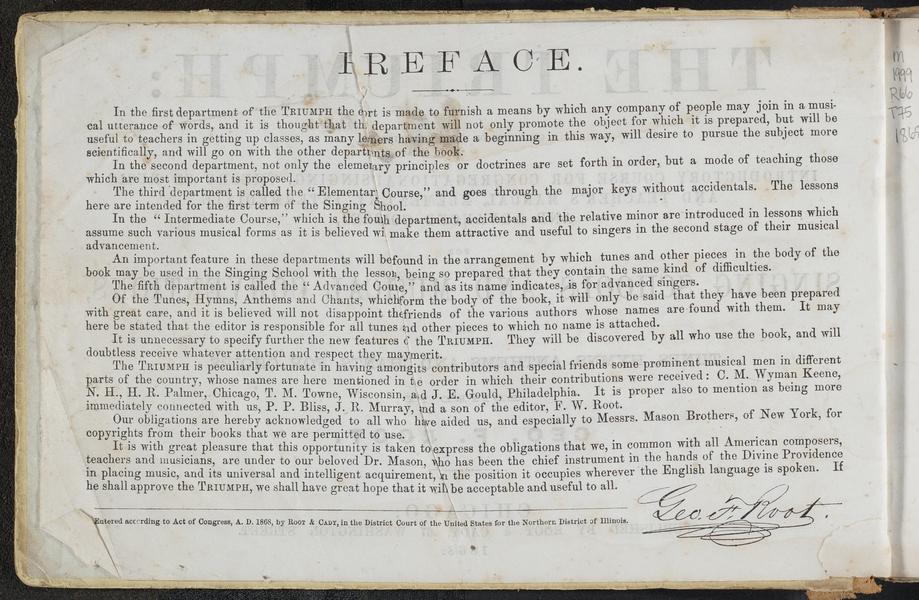 PREFACE.
In the first department of the TRIUMPH the effort is made to furnish a means by which any company of people may join in a musi-
cal utterance of words, and it is thought that this department will not only promote the object for which it is prepared, but will be
useful to teachers in getting up classes, as many learners having made a beginning in this way, will desire to pursue the subject more
scientifically, and will go on with the other departments of the book.
In the second department, not only the elementary principles or doctrines are set forth in order, but a mode of teaching those
which are most important is proposed.
The third department is called the "Elementary Course," and goes through the major keys without accidentals. The lessons
here are intended for the first term of the Singing School.
In the "Intermediate Course," which is the fourth department, accidentals and the relative minor are introduced in lessons which
assume such various musical forms as it is believed will make them attractive and useful to singers in the second stage of their musical
advancement.
An important feature in these departments will be found in the arrangement by which tunes and other pieces in the body of the
book may be used in the Singing School with the lesson, being so prepared that they contain the same kind of difficulties.
The fifth department is called the "Advanced Course," and as its name indicates, is for advanced singers.
Of the Tunes, Hymns, Anthems and Chants, which form the body of the book, it will only be said that they have been prepared
with great care, and it is believed will not disappoint the friends of the various authors whose names are found with them. It may
here be stated that the editor is responsible for all tunes and other pieces to which no name is attached.
It is unnecessary to specify further the new features of the TRIUMPH. They will be discovered by all who use the book, and will
doubtless receive whatever attention and respect they may merit.
The TRIUMPH is peculiarly fortunate in having among its contributors and special friends some prominent musical men in different
parts of the country, whose names are here mentioned in the order in which their contributions were received: C. M. Wyman Keene,
N. H., H. R. Palmer, Chicago, T. M. Towne, Wisconsin, and J. E. Gould, Philadelphia. It is proper also to mention as being more
immediately connected with us, P. P. Bliss, J. R. Murray, and a son of the editor, F. W. Root.
Our obligations are hereby acknowledged to all who have aided us, and especially to Messrs. Mason Brothers, of New York, for
copyrights from their books that we are permitted to use.
It is with great pleasure that this opportunity is taken to express the obligations that we, in common with all American composers,
teachers and musicians, are under to our beloved Dr. Mason, who has been the chief instrument in the hands of the Divine Providence
in placing music, and its universal and intelligent acquirement, in the position it occupies wherever the English language is spoken. If
he shall approve the TRIUMPH, we shall have great hope that it will be acceptable and useful to all.
Geo. F. Root.
Entered according to Act of Congress, A. D. 1868, by ROOT & CADY, in the District Court of the United States for the Northern District of Illinois.
M
1999
R66
T75
1868